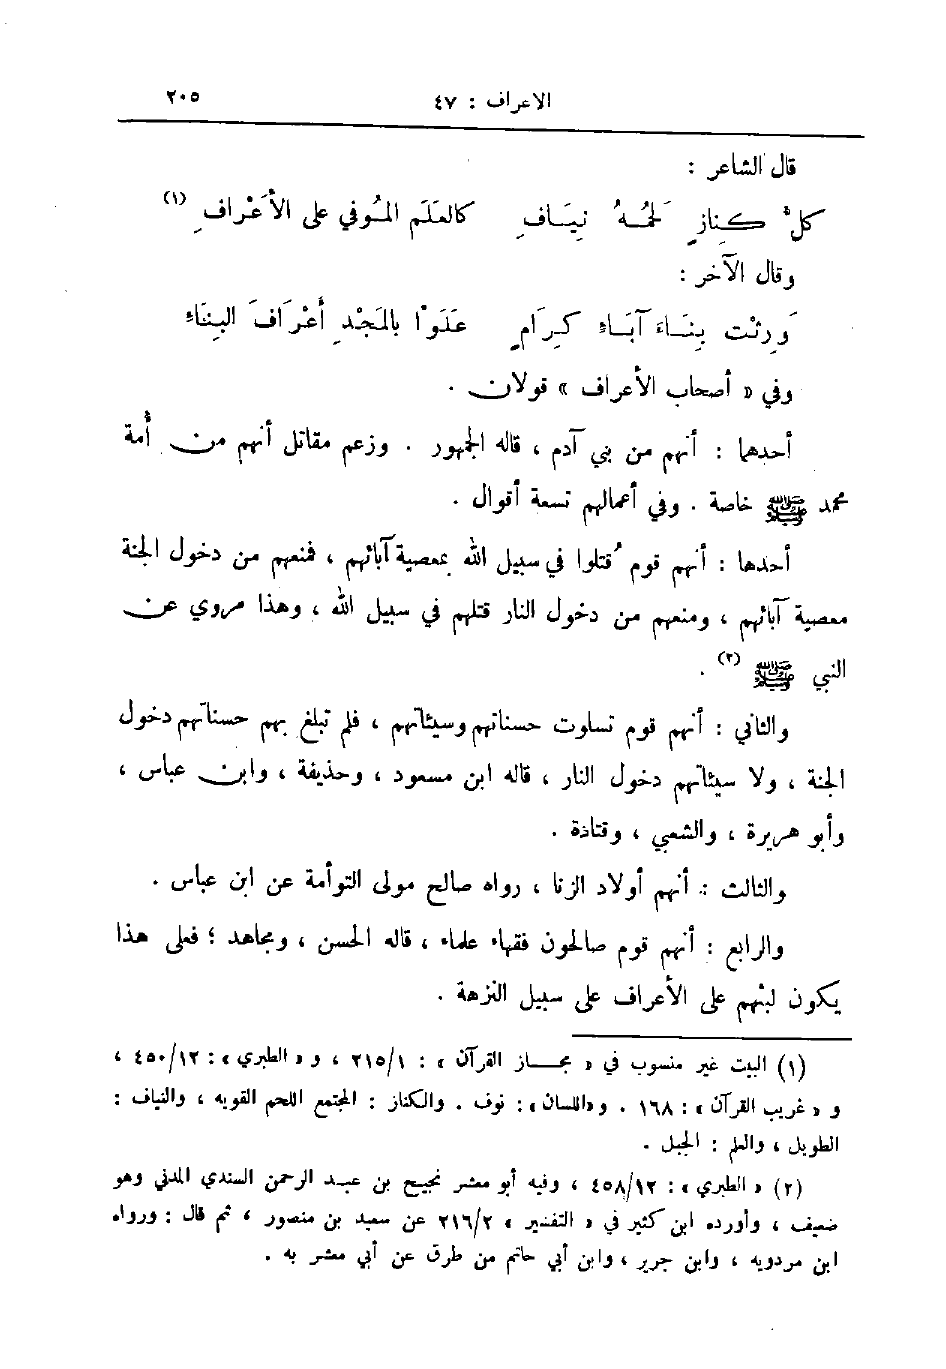 الاعراف : ٤٧ ٢٠٥
قال الشاعر :
كلُّ كِنازٍ لَحْمُهُ نِيَافِ كالعَلَمِ المُوفي على الأَعْرافِ (١)
وقال الآخر :
وَرِثْت بِنَاءَ آبَاءٍ كِرَامٍ عَلَوْا بالمَجْدِ أَعْرَافَ البِنَاءِ
وفي « أصحاب الأعراف » قولان .
أحدهما : أنهم من بني آدم ، قاله الجمهور . وزعم مقاتل أنهم من أُمة
محمد ﷺ خاصة . وفي أعمالهم تسعة أقوال .
أحدها : أنهم قوم قُتلوا في سبيل الله بمعصية آبائهم ، فمنعهم من دخول الجنة
معصية آبائهم ، ومنعهم من دخول النار قتلهم في سبيل الله ، وهذا مروي عن
النبي ﷺ (٢) .
والثاني : أنهم قوم تساوت حسناتهم وسيئاتهم ، فلم تبلغ بهم حسناتهم دخول
الجنة ، ولا سيئاتهم دخول النار ، قاله ابن مسعود ، وحذيفة ، وابن عباس ،
وأبو هريرة ، والشعبي ، وقتادة .
والثالث : أنهم أولاد الزنا ، رواه صالح مولى التوأمة عن ابن عباس .
والرابع : أنهم قوم صالحون فقهاء علماء ، قاله الحسن ، ومجاهد ؛ فعلى هذا
يكون لبثهم على الأعراف على سبيل النزهة .
(١) البيت غير منسوب في « مجاز القرآن » : ٢١٥/١ ، و « الطبري » : ٤٥٠/١٢ ،
و « غريب القرآن » : ١٦٨ . و «اللسان» : نوف . والكناز : المجتمع اللحم القويه ، والنياف :
الطويل ، والعلم : الجبل .
(٢) « الطبري » : ٤٥٨/١٢ ، وفيه أبو معشر نجيح بن عبد الرحمن السندي المدني وهو
ضعيف ، وأورده ابن كثير في « التفسير » ٢١٦/٢ عن سعيد بن منصور ، ثم قال : ورواه
ابن مردويه ، وابن جرير ، وابن أبي حاتم من طرق عن أبي معشر به .